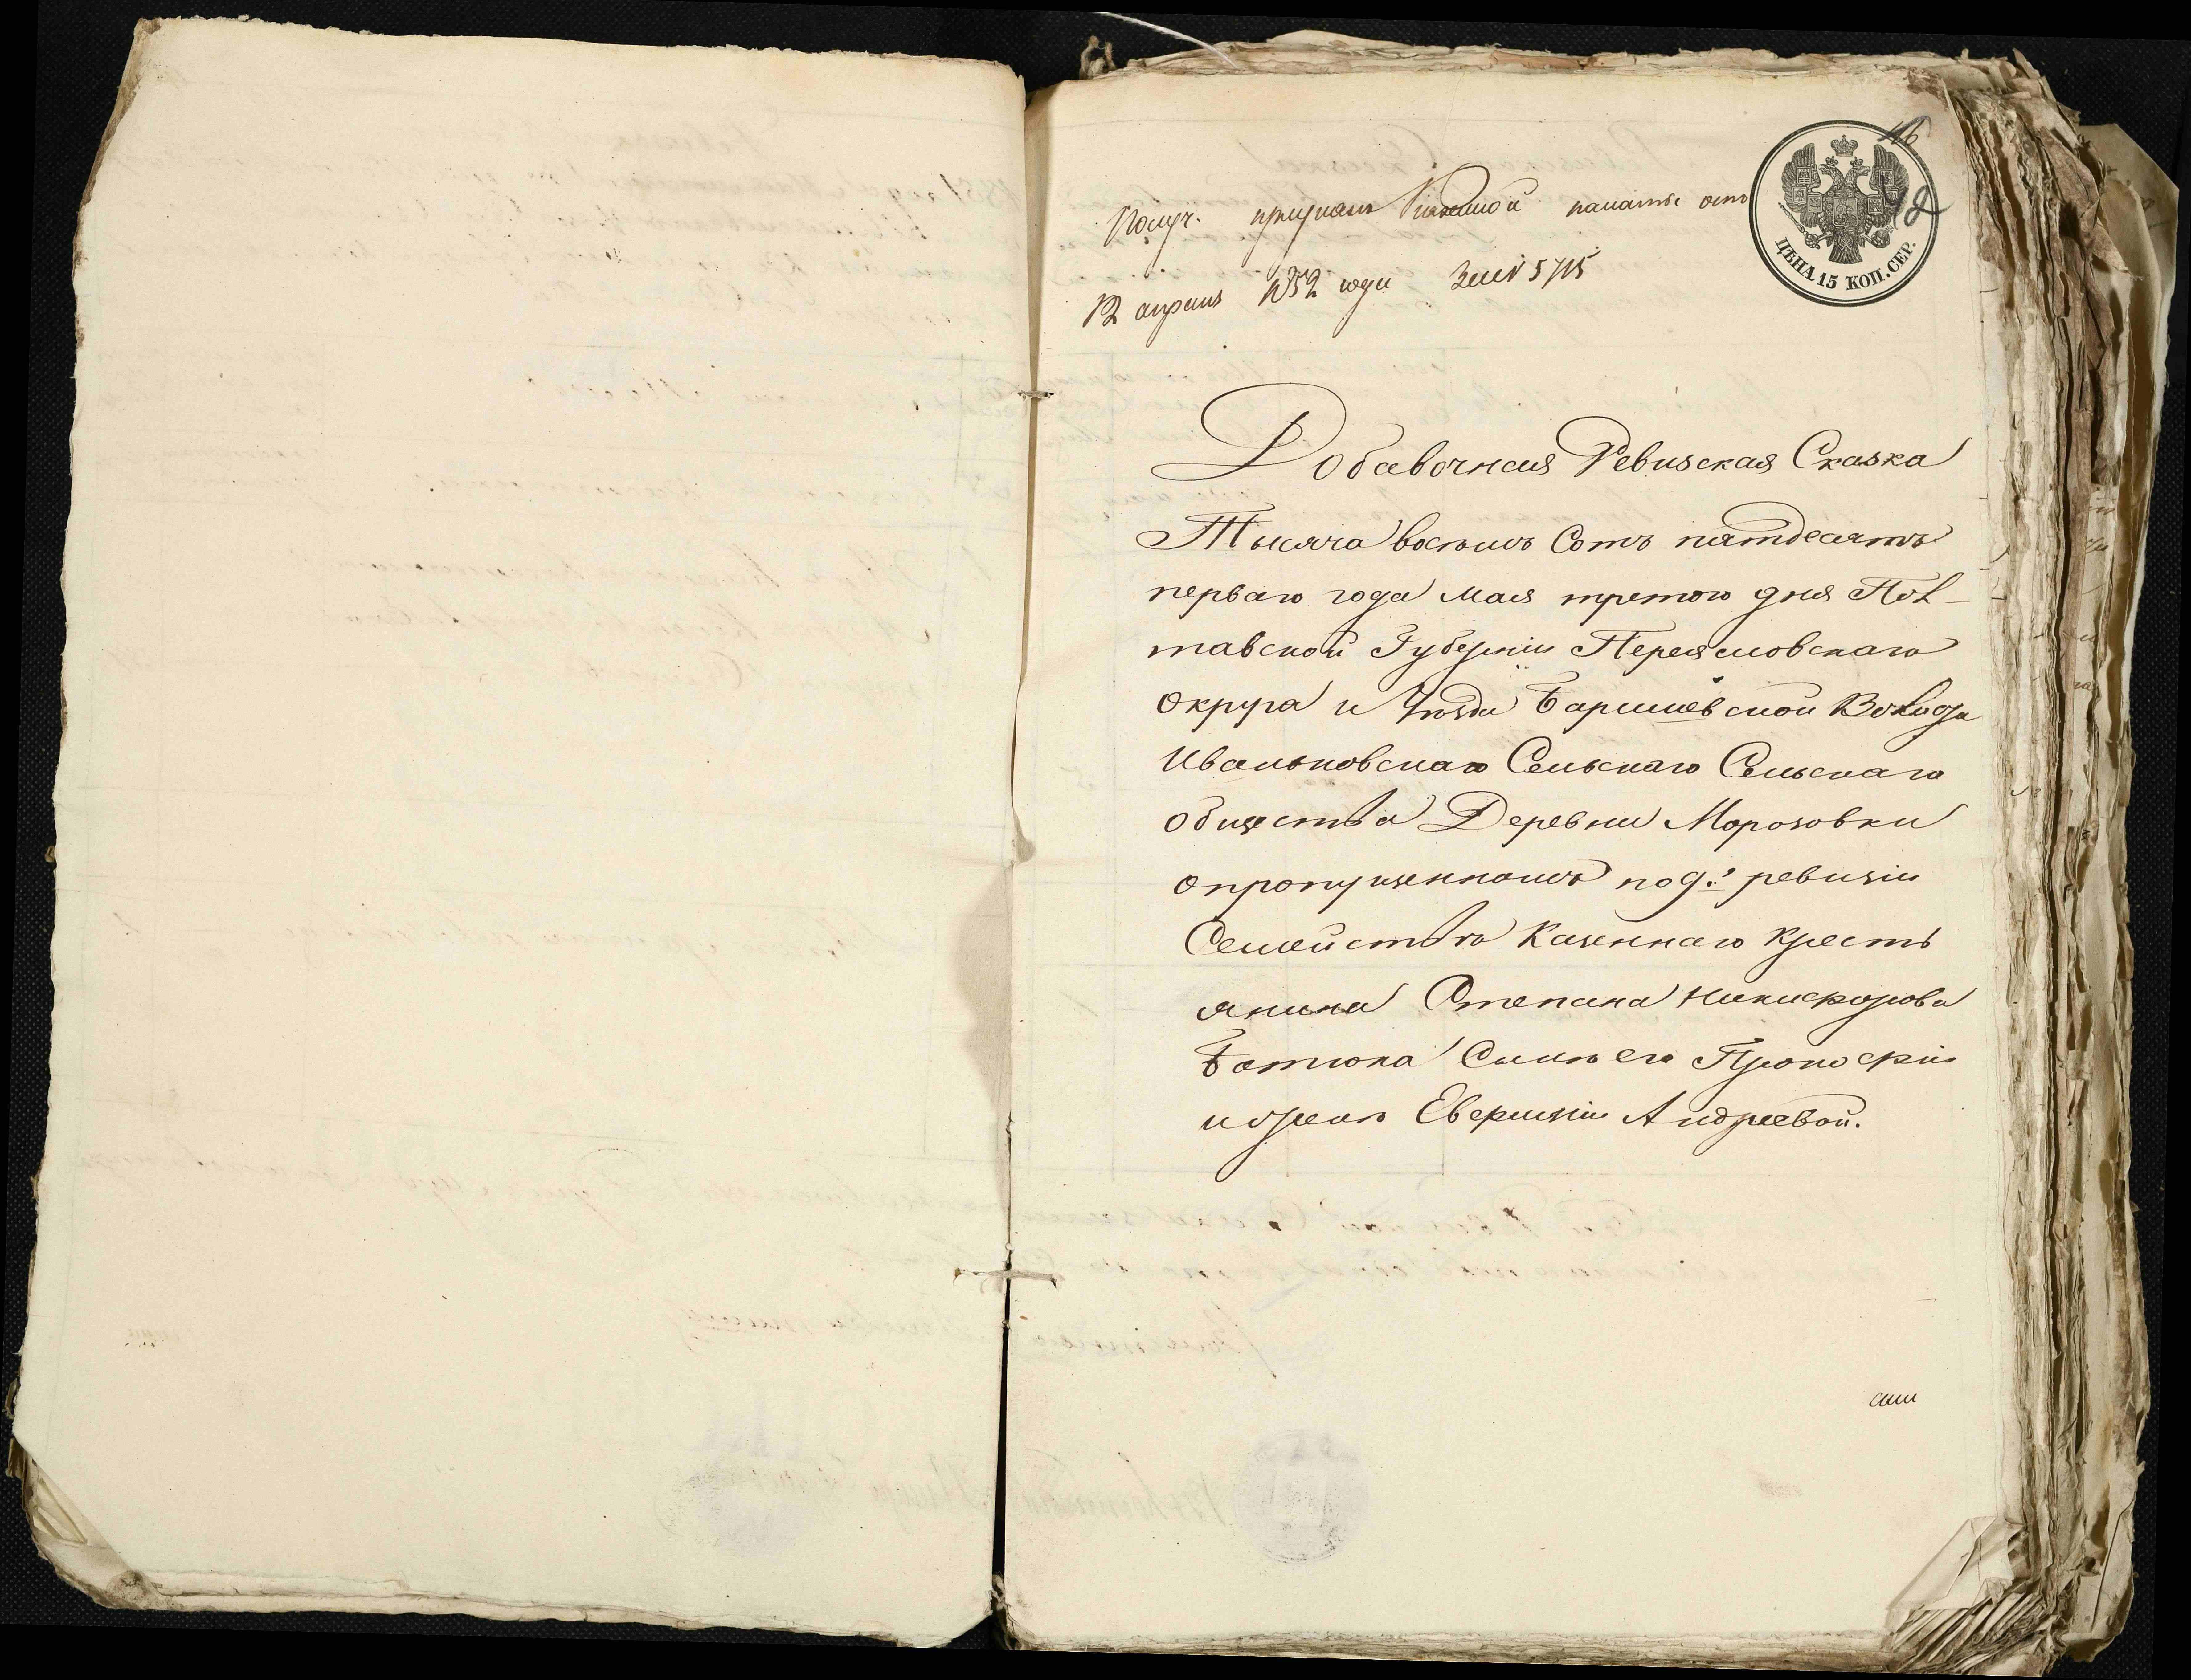 Получ. при указѣ Казенной палаты отъ
12 апрѣля 1852 года за № 5715
ЦѢНА 15 КОП. СЕР.
Добавочная Ревизская Сказка
Тысяча восѣмъ Сотъ пятдесятъ
перваго года Мая третого дня Пол-
тавской Губерніи Переясловскаго
Округа и Уѣзда Баришевской Волости
Иваньковскаго Сельскаго Сельскаго
общества Деревни Морозовки
опропущенномъ по 9й ревизіи
Семействѣ Казеннаго Кресть
янина Степана Никифорова
Батюка Сынѣ его Прокофіи
и Евфиміи Андреевой.